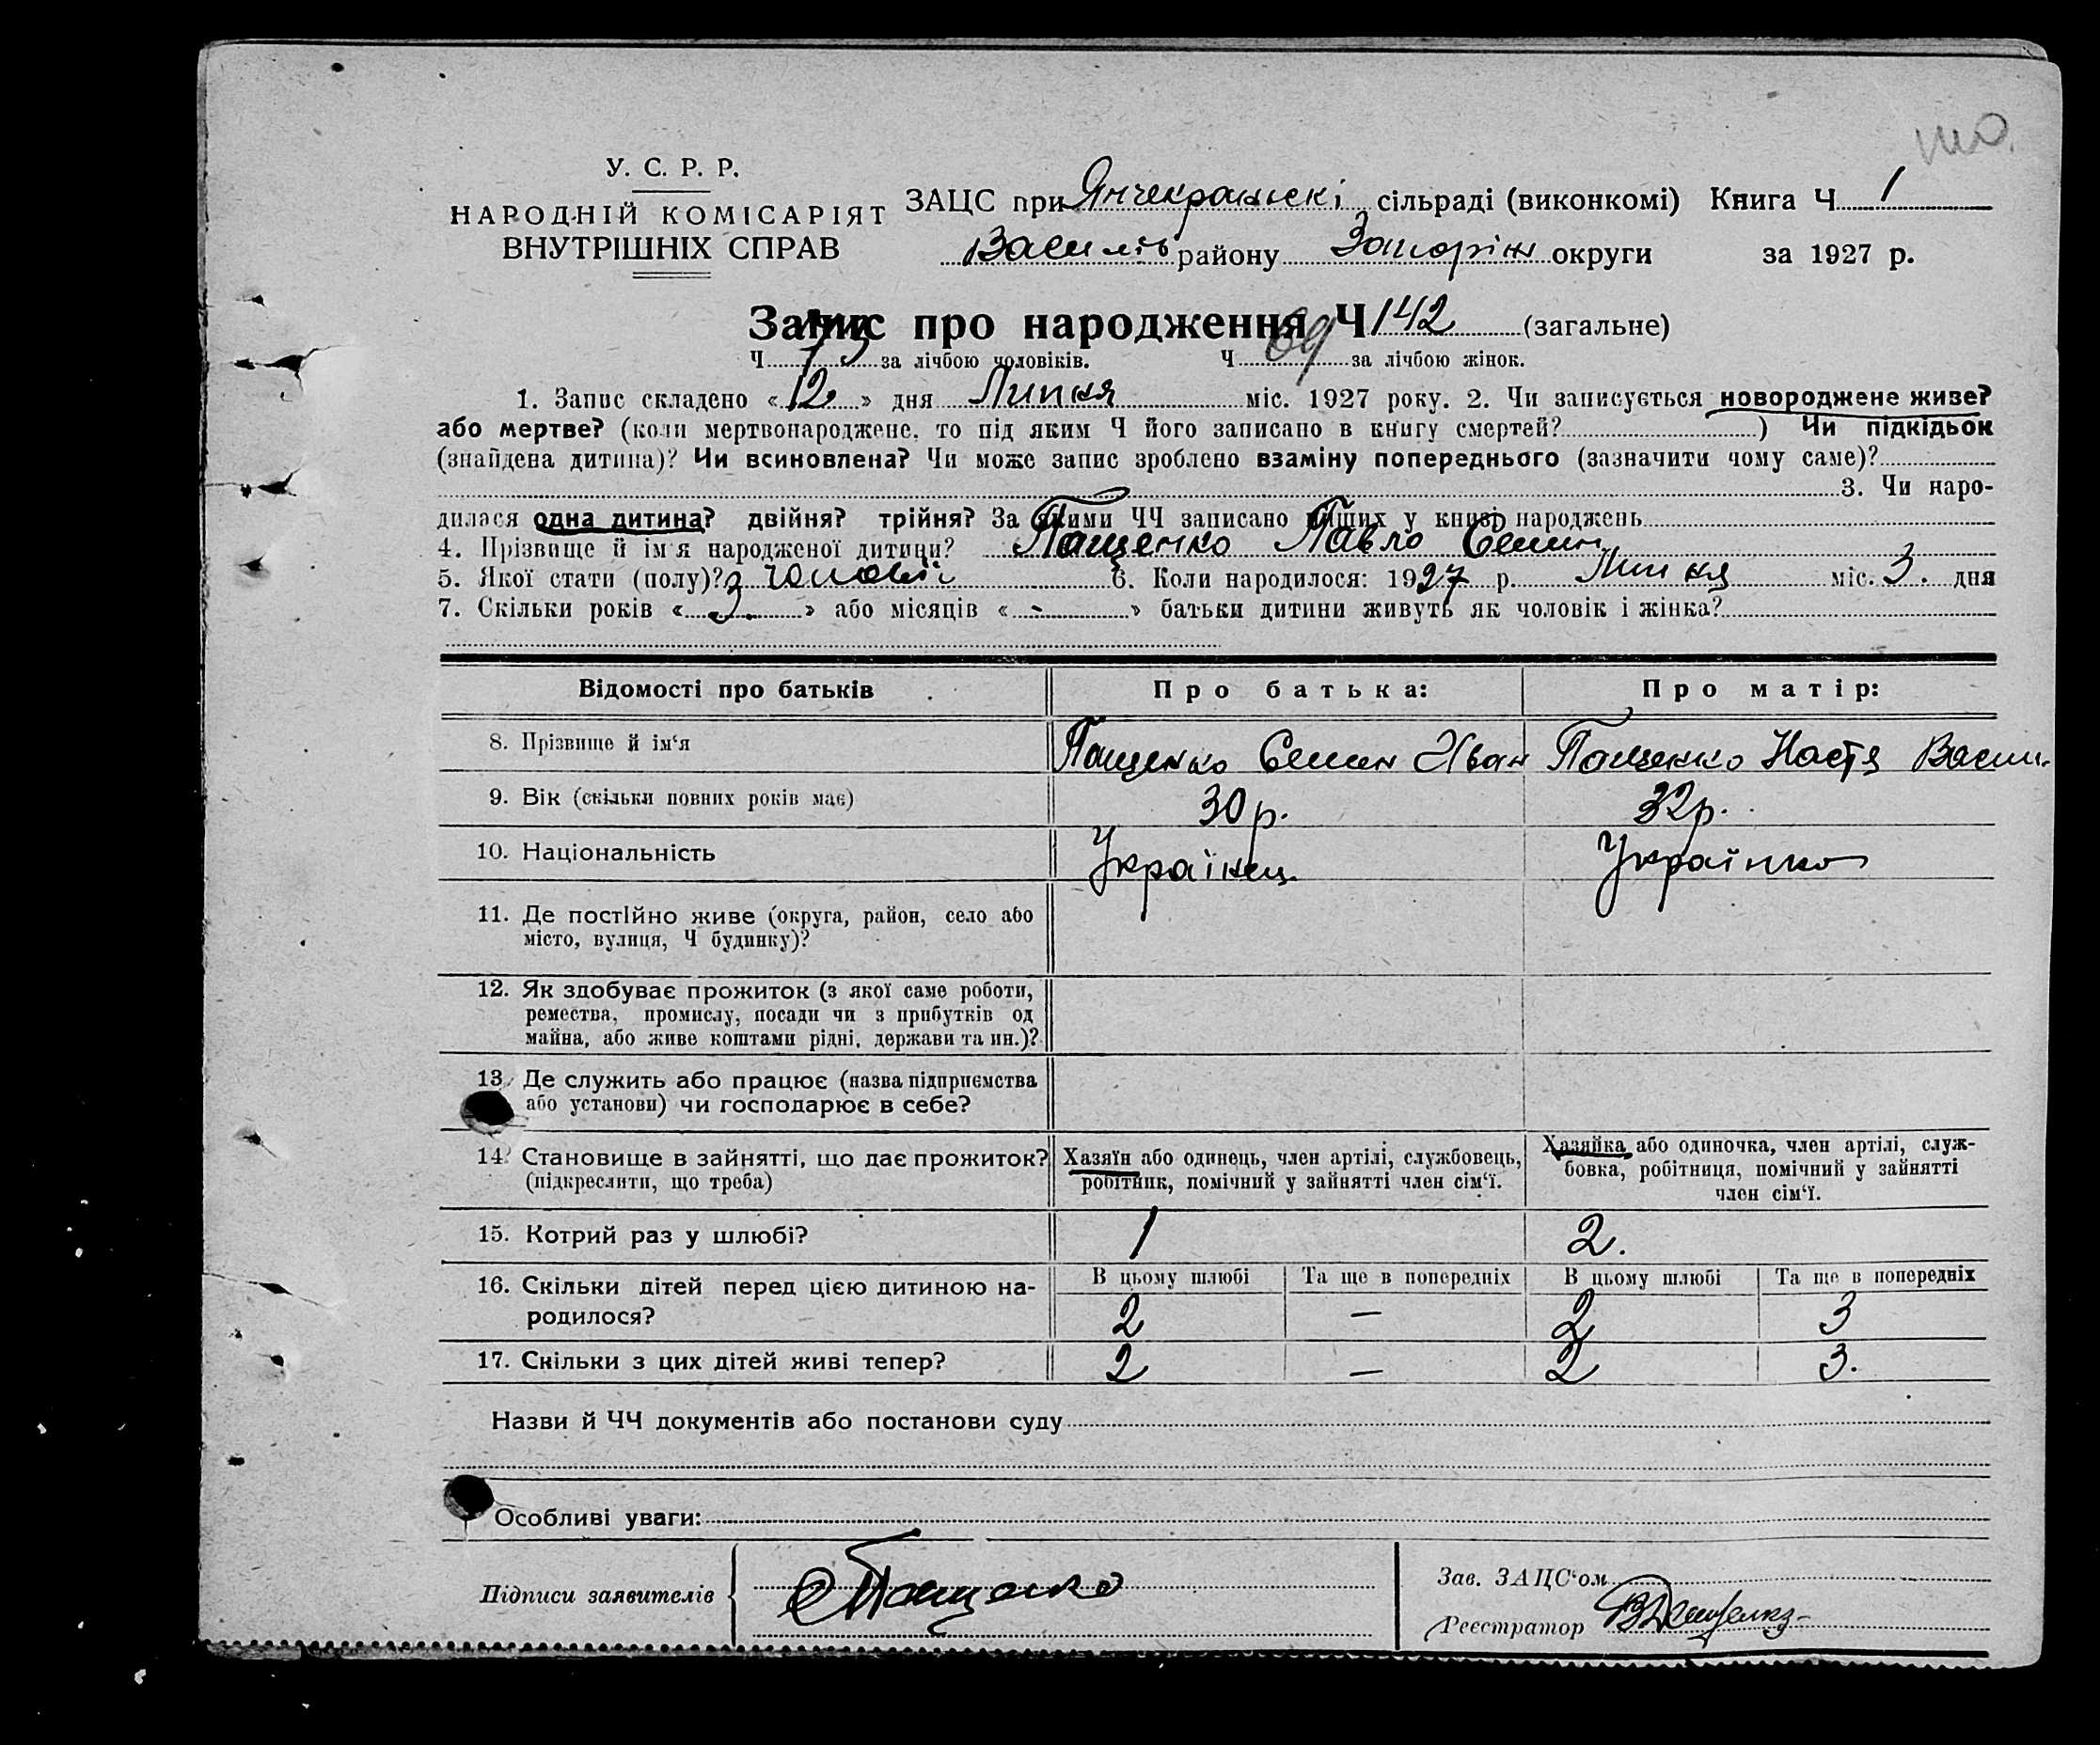 У. С. Р. Р.
НАРОДНІЙ КОМІСАРІЯТ
ВНУТРІШНІХ СПРАВ
ЗАЦС при Янчекракскі сільраді (виконкомі) Книга Ч 1
Василів району Запоріж округи за 1927 р.
Запис про народження Ч 142 (загальне)
Ч 73 за лічбою чоловіків. Ч 69 за лічбою жінок.
1. Запис складено «12» дня Липня міс. 1927 року. 2. Чи записується новороджене живе?
або мертве? (коли мертвонароджене, то під яким Ч його записано в книгу смертей? ) Чи підкідьок
(знайдена дитина)? Чи всиновлена? Чи може запис зроблено взаміну попереднього (зазначити чому саме)?
3. Чи наро-
дилася одна дитина? двійня? трійня? За якими ЧЧ записано инших у книзі народжень
4. Прізвище й ім'я народженої дитини? Пащенко Павло Семин
5. Якої стати (полу)? чоловіч 6. Коли народилося: 1927 р. Липня міс. 3. дня
7. Скільки років «3» або місяців «-» батьки дитини живуть як чоловік і жінка?
Відомості про батьків Про батька: Про матір:
8. Прізвище й ім'я Пащенко Семин Иван Пащенко Настя Васил.
9. Вік (скільки повних років має) 30 р. 32 р.
10. Національність Українец Українка
11. Де постійно живе (округа, район, село або
місто, вулиця, Ч будинку)?
12. Як здобуває прожиток (з якої саме роботи,
ремества, промислу, посади чи з прибутків од
майна, або живе коштами рідні, держави та ин.)?
13. Де служить або працює (назва підприємства
або установи) чи господарює в себе?
14. Становище в зайнятті, що дає прожиток?
(підкреслити, що треба)
Хазяїн або одинець, член артілі, службовець,
робітник, помічний у зайнятті член сім'ї.
Хазяйка або одиночка, член артілі, служ-
бовка, робітниця, помічний у зайнятті
член сім'ї.
15. Котрий раз у шлюбі? 1 2.
16. Скільки дітей перед цією дитиною на-
родилося?
В цьому шлюбі Та ще в попередніх В цьому шлюбі Та ще в попередніх
2 — 2 3
17. Скільки з цих дітей живі тепер? 2 — 2 3.
Назви й ЧЧ документів або постанови суду
Особливі уваги:
Підписи заявителів СПащенко
Зав. ЗАЦС'ом
Реєстратор